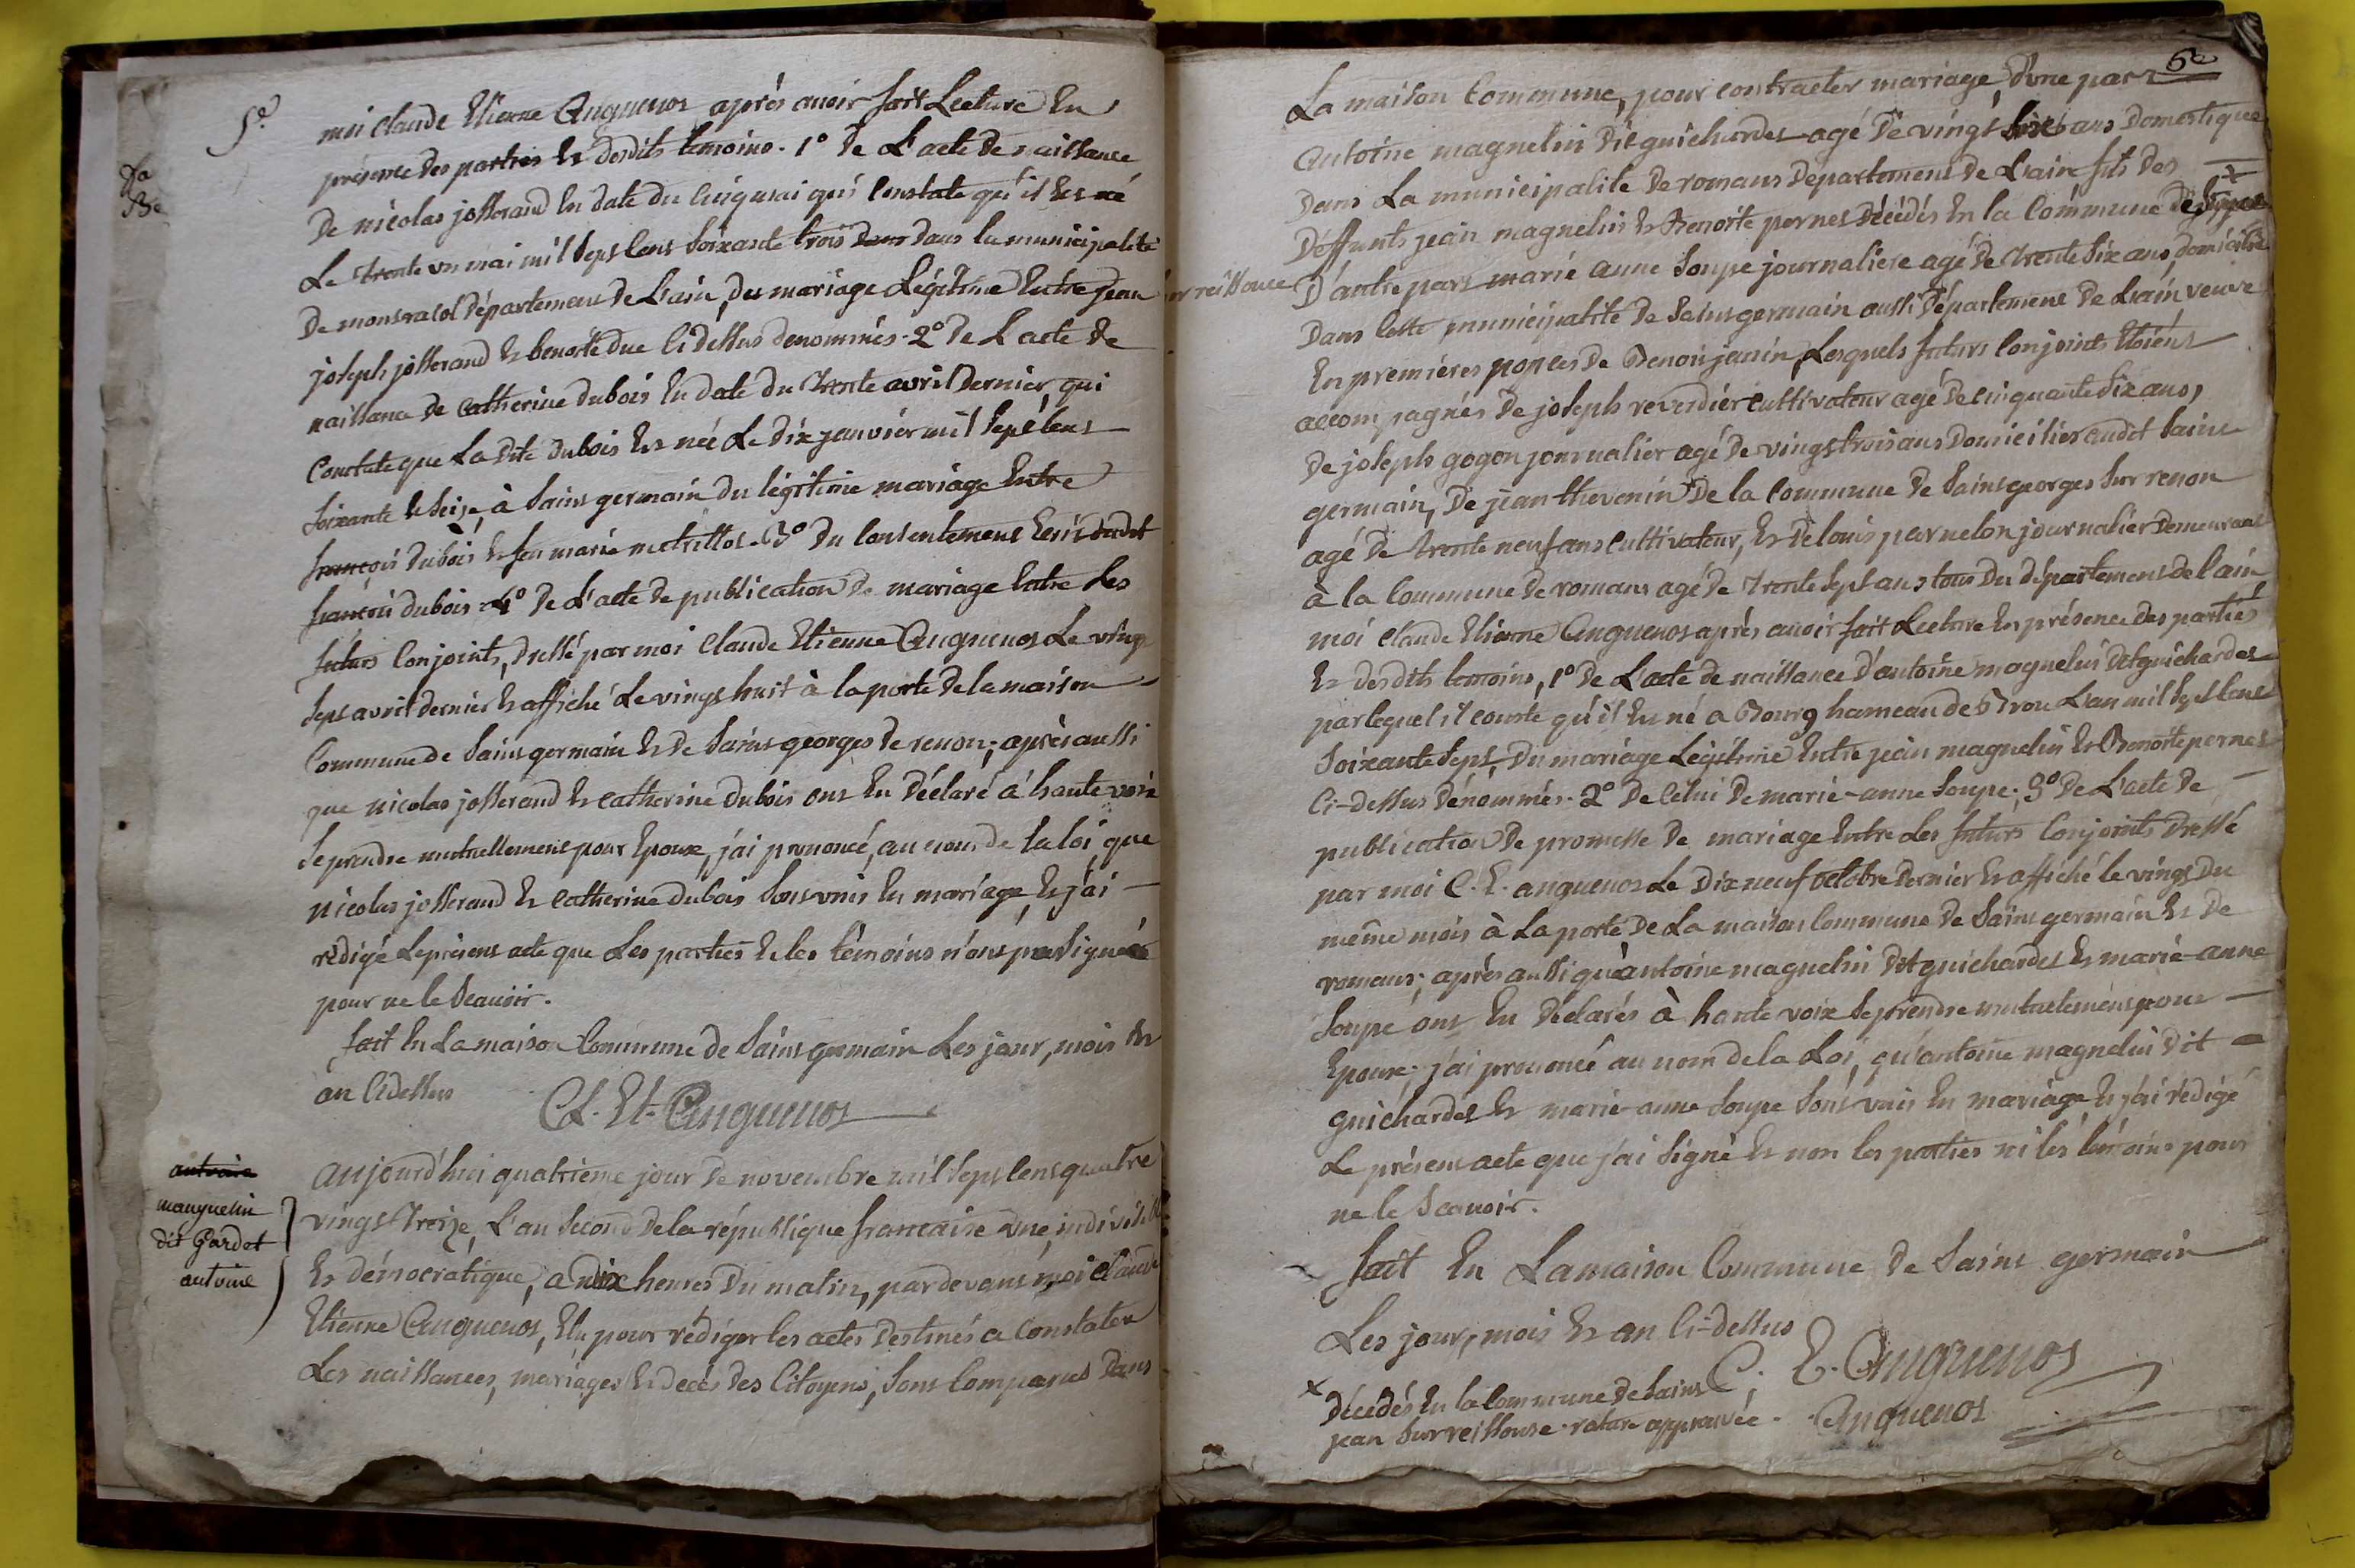 5e.
moi claude Etienne Anguenot après avoir fait Lecture En
présence des parties Et desdits temoins. 1o de L'acte de naissance
de nicolas josserand En date du cinq mai qui constate qu'il Est né
Le trente un mai mil sept cens soixante trois dans la municipalité
de monracol département de L'ain, du mariage Légitime Entre jean
joseph josserand Et benoite due ci dessus denommés. 2o de L'acte de
naissance de catherine dubois En date du trente avril dernier qui
constate que La dite dubois Est née Le dix janvier mil sept cens
soixante Et seize, à saint germain du légitime mariage Entre
françois dubois Et feu marie 3o du consentement Ecrit dudit
françois dubois 4o de L'acte de publication de mariage Entre Les
futurs conjoints, dressé par moi Claude Etienne Anguenot Le vingt
sept avril dernier Et affiché Le vingt huit à la porte de la maison
commune de saint germain Et de saint georges de renon; après aussi
que nicolas josserand Et catherine dubois ont Eu déclaré à haute voix
se prendre mutuellement pour Epoux, j'ai prononcé, au nom de la loi, que
nicolas josserand Et catherine dubois sont unis En mariage, Et j'ai
rédigé Le présent acte que Les parties Et les témoins n'ont pas signé
pour ne le scavoir.
fait En La maison commune de saint germain Les jour, mois Et
an ci dessus
Cl. Et. Anguenot
antoine
manguelin
dit Gardet
antoine
aujourd'hui quatrième jour de novembre mil sept cens quatre
vingt treize, L'an second de la république francaise une, indivisible
Et démocratique, a dix heures du matin, pardevant moi claude
Etienne Anguenot, Elu pour rédiger les actes destinés a constater
Les naissances, mariages Et decès des citoyens, sont comparus dans
6e
La maison commune, pour contracter mariage, d'une part
antoine magnelin dit guichardet agé de vingt six ans domestique
dans La municipalité de romans departement de L'ain fils des
deffunts jean magnelin Et Benoite pernet décédés En la commune de
D'autre part marie anne soupe journaliere agé de trente six ans, domiciliée
dans cette municipalité de saint germain aussi département de L'ain veuve
En premières nopces de Benoit janin, Lesquels futurs conjoints Etoient
accompagnés de joseph reverdier cultivateur agé de cinquante six ans,
de joseph gogon journalier agé de vingt trois ans domicilier audit saint
germain, de jean thevenin de la commune de saint georges sur renon
agé de trente neuf ans cultivateur, Et de louis pernelon journalier demeurant
à la commune de romans agé de trente sept ans tous du département de l'ain
moi claude Etienne Anguenot après avoir fait Lecture En présence des parties
Et desdits temoins, 1o de L'acte de naissance d'antoine magnelin dit guichardet
par lequel il conste qu'il Est né a Bourg hameau de Brou L'an mil sept cens
soixante sept, du mariage Légitime Entre jean magnelin Et Benoite pernet
ci-dessus dénommés. 2o de celui de marie-anne soupe. 3o de L'acte de
publication de promesse de mariage Entre Les futurs conjoints dressé
par moi C. E. anguenot Le dix neuf octobre dernier Et affiché le vingt du
même mois à La porte de La maison commune de saint germain Et de
romans; après aussi qu'antoine magnelin dit guichardet Et marie-anne
soupe ont Eu déclarés à haute voix se prendre mutuelement pour
Epoux; j'ai prononcé au nom de la Loi, qu'antoine magnelin dit
guichardet Et marie-anne soupe sont unis En mariage Et j'ai rédigé
Le présent acte que j'ai signé Et non les parties ni les témoins pour
ne le scavoir.
fait En La maison commune de saint germain
Les jour, mois Et an ci-dessus
C. E. Anguenot
x décédés En la commune de saint
jean sur reissouse. rature approuvée. Anguenot